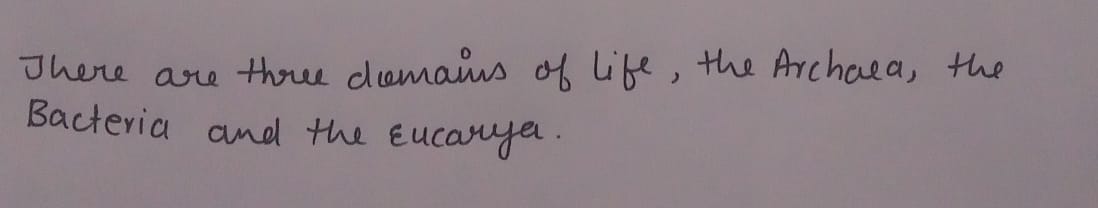 There are three domains of life, the Archaea, the
Bacteria and the Eucarya.